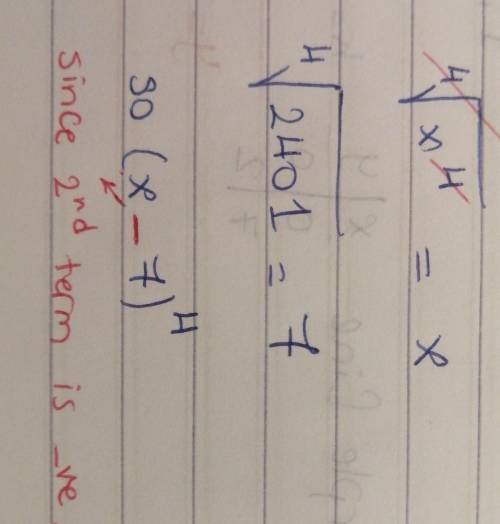 ⁴√x⁴ = x
⁴√2401 = 7
so (x - 7)⁴
since 2nd term is -ve